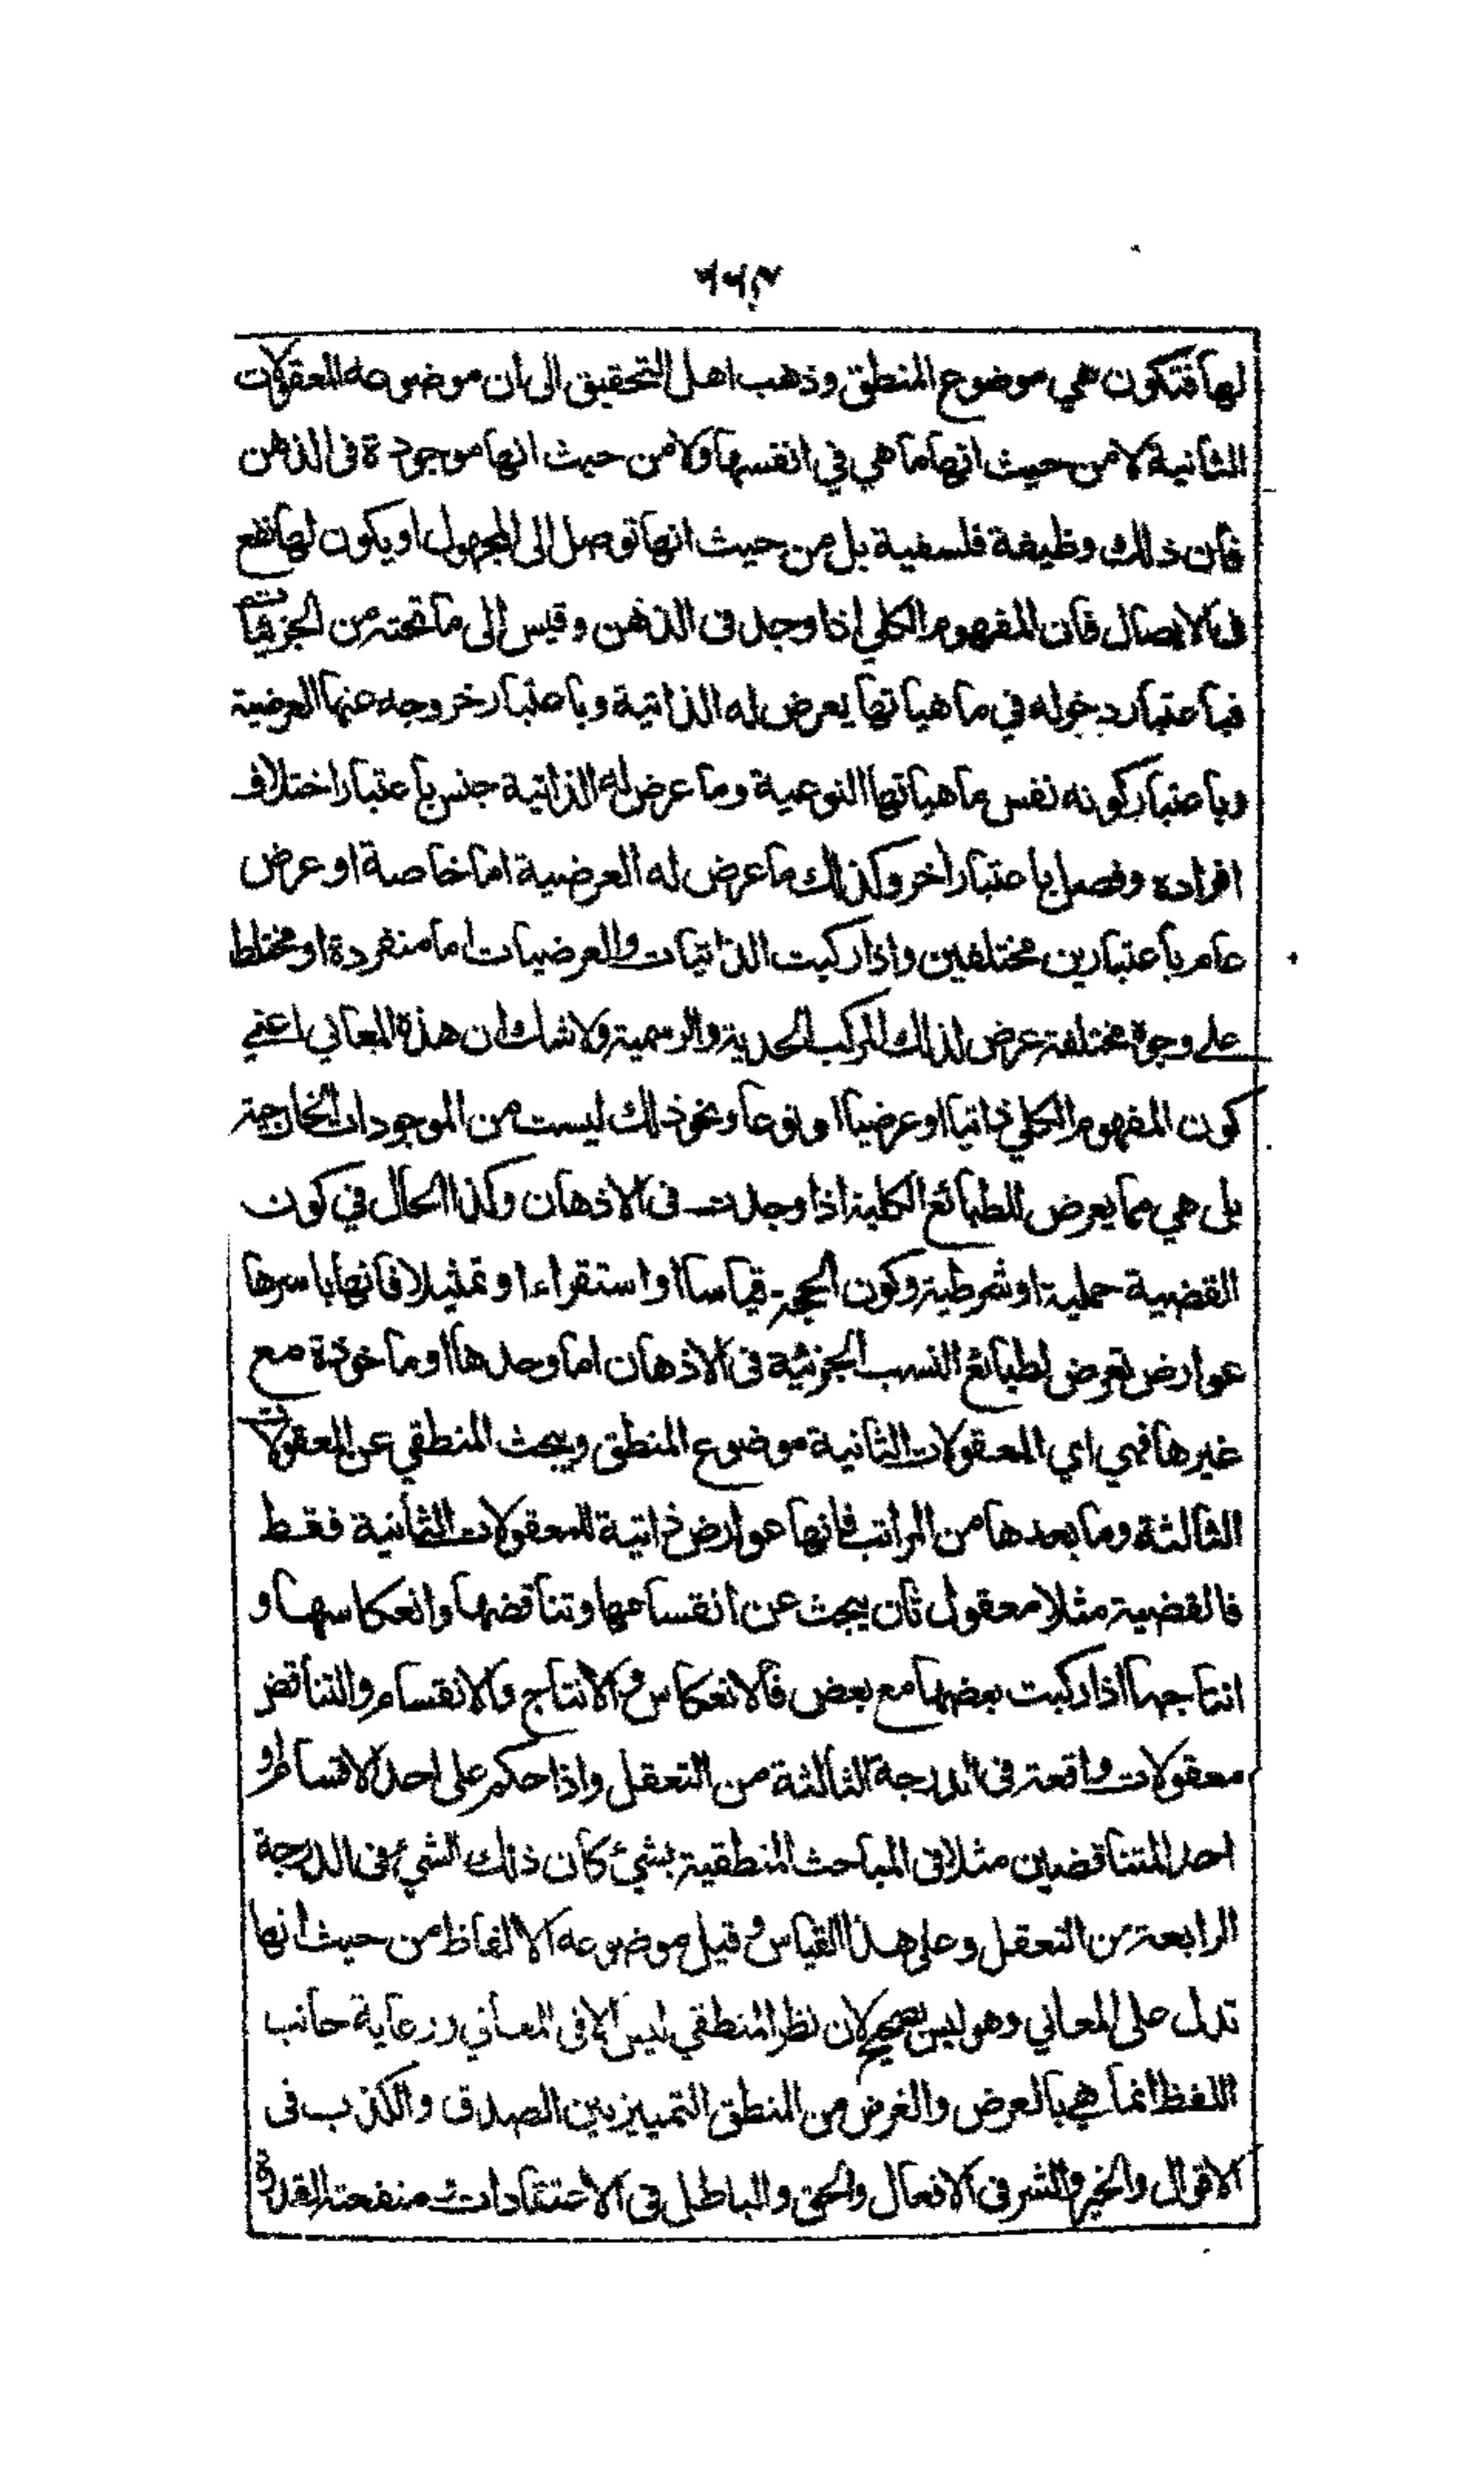 ٦٦٣
لها فتكون هي موضوع المنطق وذهب اهل التحقيق الى ان موضوعه المعقولات
الثانية لا من حيث انها ما هي في انفسها ولا من حيث انها موجودة فى الذهن
فان ذلك وظيفة فلسفية بل من حيث انها توصل الى المجهول او يكون لها نفع
فى الايصال فان المفهوم الكلي اذا وجد فى الذهن وقيس الى ما تحته من الجزئيات
فباعتبار دخوله في ماهياتها يعرض له الذاتية وباعتبار خروجه عنها العرضية
وباعتبار كونه نفس ماهياتها النوعية وما عرض له الذاتية جنس باعتبار اختلاف
افراده وفصل باعتبار اخر وكذلك ما عرض له العرضية اما خاصة او عرض
عام باعتبارين مختلفين واذا ركبت الذاتيات والعرضيات اما منفردة او مختلط
على وجوة مختلفة عرض لذلك المركب الحدية والرسمية ولا شك ان هذة المعاني اعني
كون المفهوم الكلي ذاتيا او عرضيا او نوعا ونحو ذلك ليست من الموجودات الخارجية
بل هي مما يعرض للطبائع الكلية اذا وجدت فى الاذهان وكذا الحال في كون
القضية حملية او شرطية وكون الحجة قياسا او استقراءا او تمثيلا فانها باسرها
عوارض تعرض لطبائع النسب الجزئية فى الاذهان اما وحدها او ماخوذة مع
غيرها فهي اي المعقولات الثانية موضوع المنطق ويبحث المنطقي عن المعقولات
الثالثة وما بعدها من المراتب فانها عوارض ذاتية للمعقولات الثانية فقط
فالقضية مثلا معقول ثان يبحث عن انقسامها وتناقضها وانعكاسها و
انتاجها اذا ركبت بعضها مع بعض فالانعكاس والانتاج والانقسام والتناقض
معقولات واقعة فى الدرجة الثالثة من التعقل واذا حكم على احد الاقسام او
احد المتناقضين مثلا فى المباحث المنطقية بشيئ كان ذلك الشيئ فى الدرجة
الرابعة من التعقل وعلى هذا القياس وقيل موضوعه الالفاظ من حيث انها
تدل على المعاني وهو ليس بصحيح لان نظر المنطقي ليس الا فى المعاني ورعاية جانب
اللفظ انما هي بالعرض والغرض من المنطق التمييز بين الصدق والكذب فى
الاقوال والخير والشر فى الافعال والحق والباطل فى الاعتقادات ومنفعته القدرة